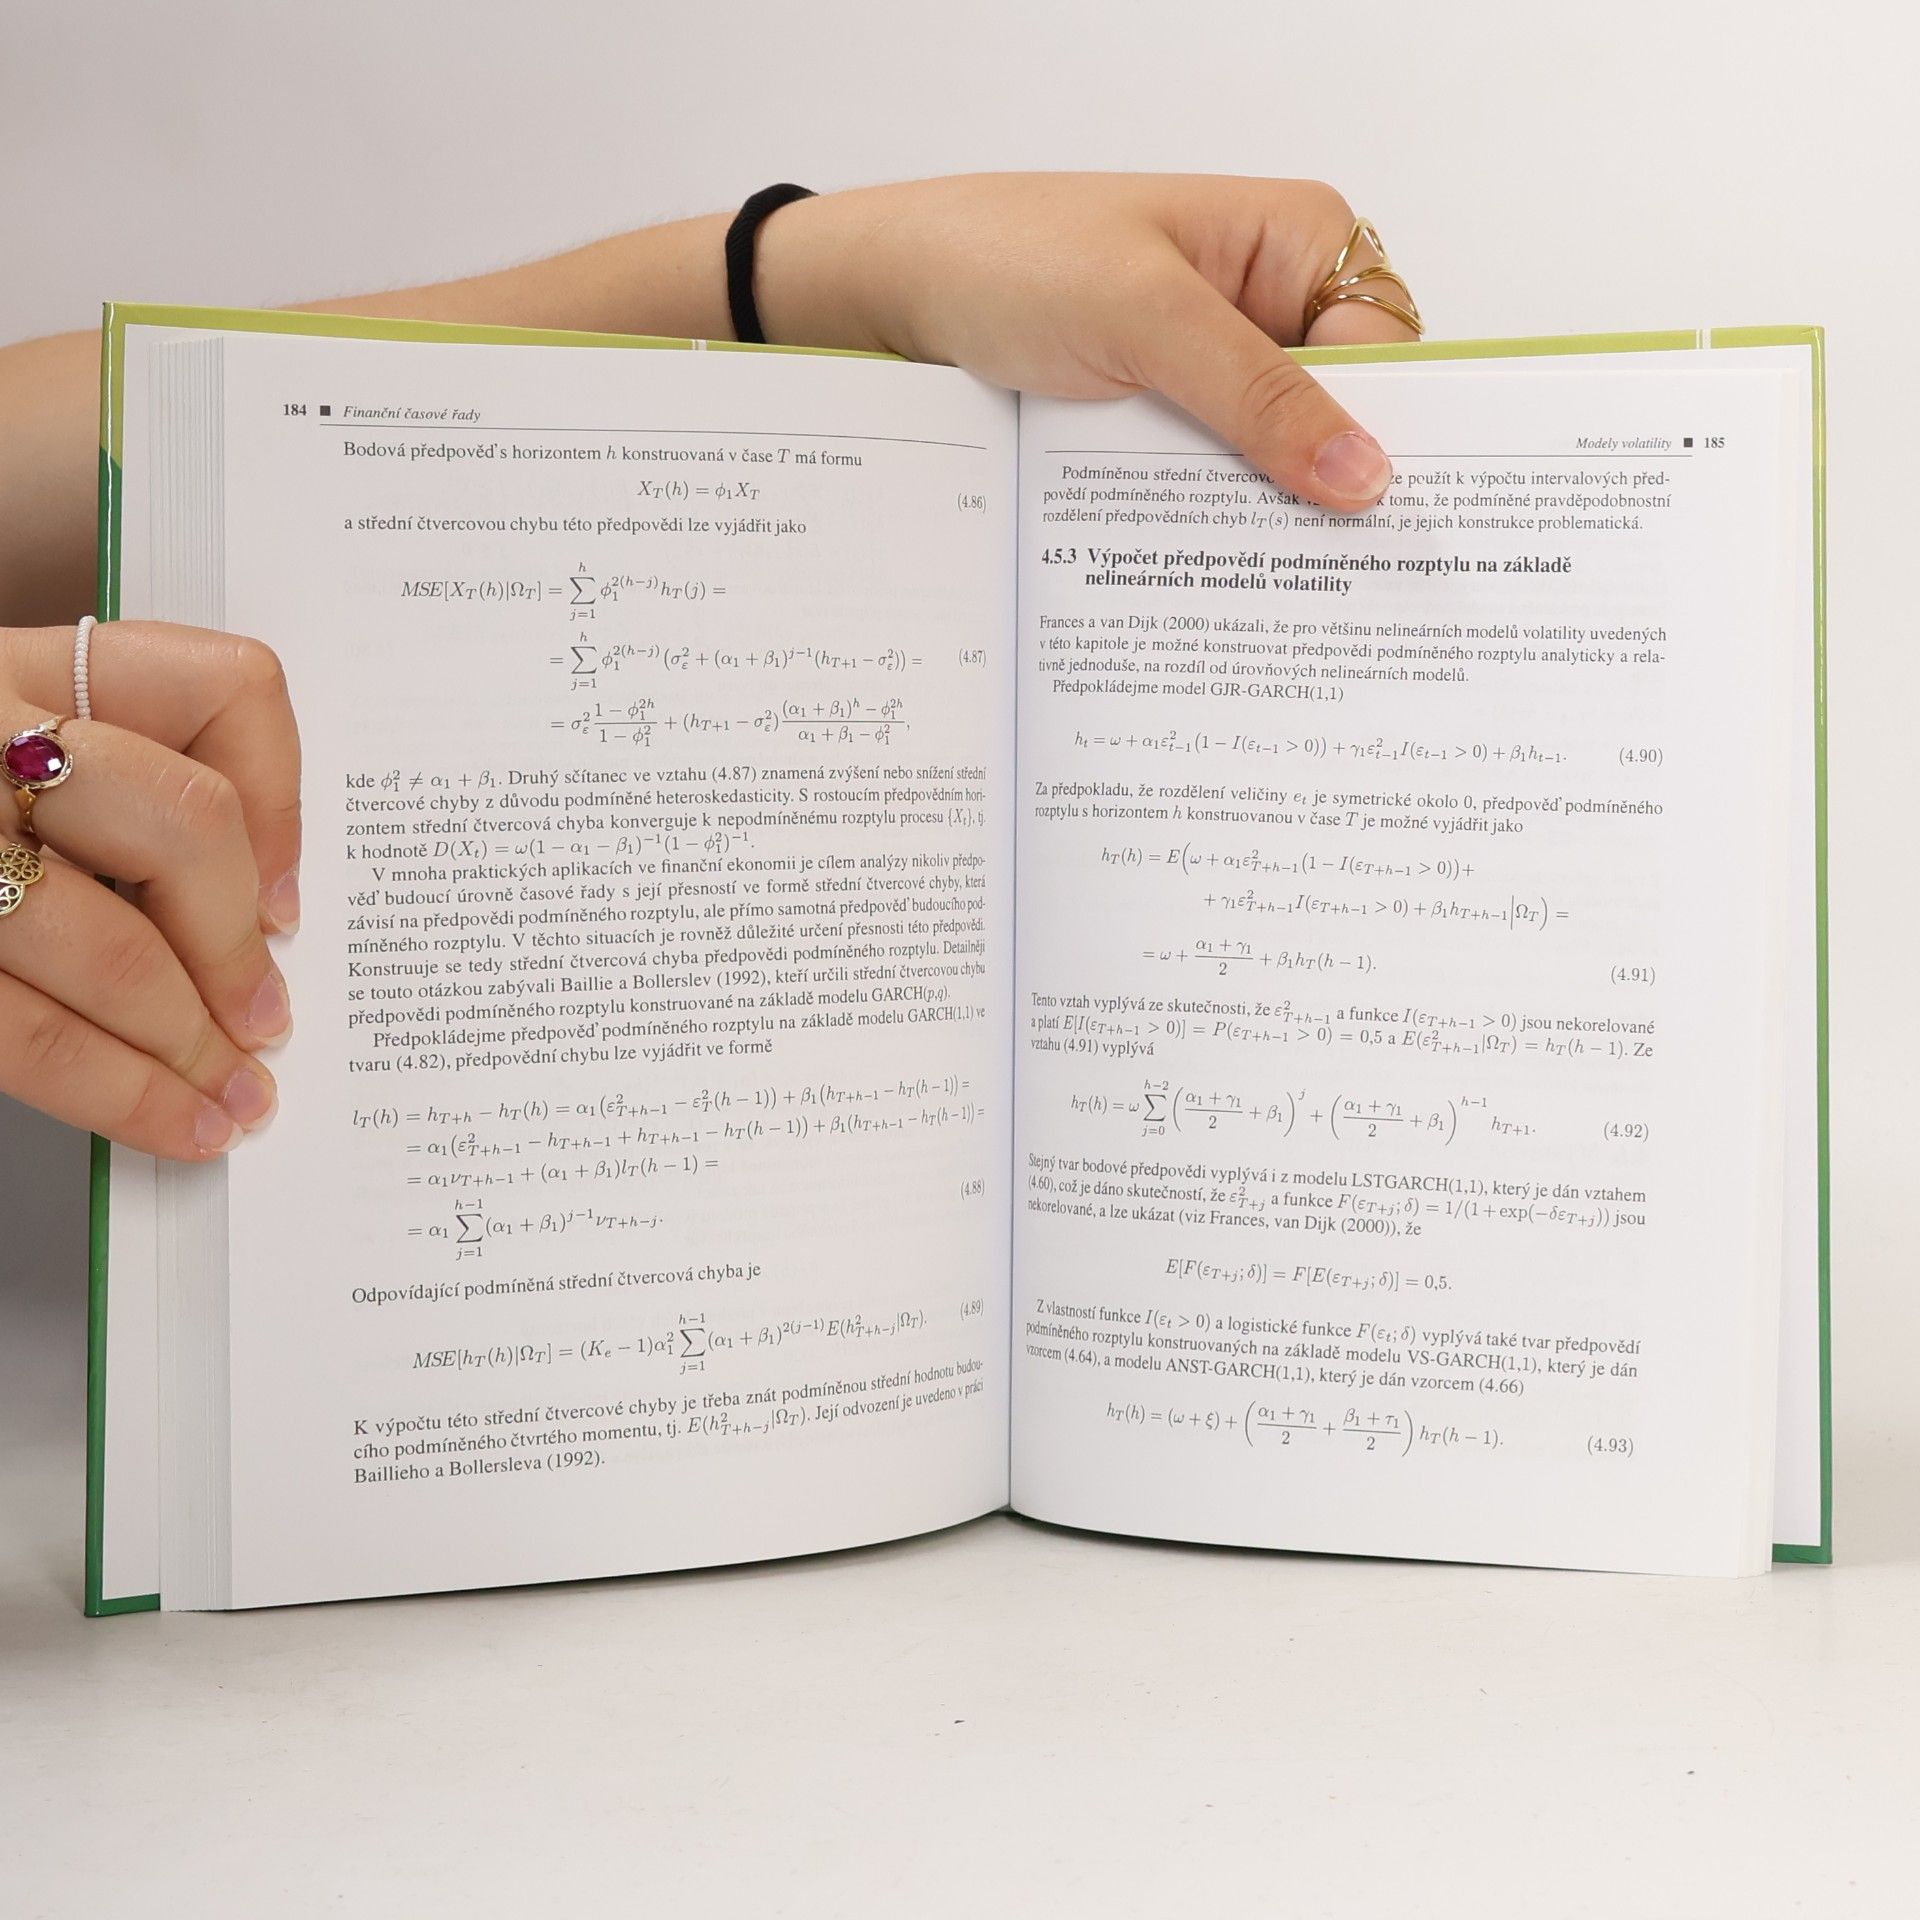 184 ■ Finanční časové řady
Bodová předpověď s horizontem h konstruovaná v čase T má formu
X_T(h) = ϕ_1 X_T
(4.86)
a střední čtvercovou chybu této předpovědi lze vyjádřit jako
MSE[X_T(h)|Ω_T] = ∑_{j=1}^{h} ϕ_1^{2(h−j)} h_T(j) =
= ∑_{j=1}^{h} ϕ_1^{2(h−j)} (σ_ε^2 + (α_1 + β_1)^{j−1}(h_{T+1} − σ_ε^2)) = (4.87)
= σ_ε^2 \frac{1 − ϕ_1^{2h}}{1 − ϕ_1^2} + (h_{T+1} − σ_ε^2) \frac{(α_1 + β_1)^h − ϕ_1^{2h}}{α_1 + β_1 − ϕ_1^2},
kde ϕ_1^2 ≠ α_1 + β_1. Druhý sčítanec ve vztahu (4.87) znamená zvýšení nebo snížení střední
čtvercové chyby z důvodu podmíněné heteroskedasticity. S rostoucím předpovědním hori-
zontem střední čtvercová chyba konverguje k nepodmíněnému rozptylu procesu {X_t}, tj.
k hodnotě D(X_t) = ω(1 − α_1 − β_1)^{−1}(1 − ϕ_1^2)^{−1}.
V mnoha praktických aplikacích ve finanční ekonomii je cílem analýzy nikoliv předpo-
věď budoucí úrovně časové řady s její přesností ve formě střední čtvercové chyby, která
závisí na předpovědi podmíněného rozptylu, ale přímo samotná předpověď budoucího pod-
míněného rozptylu. V těchto situacích je rovněž důležité určení přesnosti této předpovědi.
Konstruuje se tedy střední čtvercová chyba předpovědi podmíněného rozptylu. Detailněji
se touto otázkou zabývali Baillie a Bollerslev (1992), kteří určili střední čtvercovou chybu
předpovědi podmíněného rozptylu konstruované na základě modelu GARCH(p,q).
Předpokládejme předpověď podmíněného rozptylu na základě modelu GARCH(1,1) ve
tvaru (4.82), předpovědní chybu lze vyjádřit ve formě
l_T(h) = h_{T+h} − h_T(h) = α_1(ε_{T+h−1}^2 − ε_T^2(h − 1)) + β_1(h_{T+h−1} − h_T(h − 1)) =
= α_1(ε_{T+h−1}^2 − h_{T+h−1} + h_{T+h−1} − h_T(h − 1)) + β_1(h_{T+h−1} − h_T(h − 1)) =
= α_1 ν_{T+h−1} + (α_1 + β_1) l_T(h − 1) =
(4.88)
= α_1 ∑_{j=1}^{h−1} (α_1 + β_1)^{j−1} ν_{T+h−j}.
Odpovídající podmíněná střední čtvercová chyba je
MSE[h_T(h)|Ω_T] = (K_e − 1)α_1^2 ∑_{j=1}^{h−1} (α_1 + β_1)^{2(j−1)} E(h_{T+h−j}^2|Ω_T). (4.89)
K výpočtu této střední čtvercové chyby je třeba znát podmíněnou střední hodnotu budou-
cího podmíněného čtvrtého momentu, tj. E(h_{T+h−j}^2|Ω_T). Její odvození je uvedeno v práci
Baillieho a Bollersleva (1992).
Modely volatility ■ 185
Podmíněnou střední čtvercovo ze použít k výpočtu intervalových před-
povědí podmíněného rozptylu. Avšak k tomu, že podmíněné pravděpodobnostní
rozdělení předpovědních chyb l_T(s) není normální, je jejich konstrukce problematická.
4.5.3 Výpočet předpovědí podmíněného rozptylu na základě
nelineárních modelů volatility
Frances a van Dijk (2000) ukázali, že pro většinu nelineárních modelů volatility uvedených
v této kapitole je možné konstruovat předpovědi podmíněného rozptylu analyticky a rela-
tivně jednoduše, na rozdíl od úrovňových nelineárních modelů.
Předpokládejme model GJR-GARCH(1,1)
h_t = ω + α_1 ε_{t−1}^2 (1 − I(ε_{t−1} > 0)) + γ_1 ε_{t−1}^2 I(ε_{t−1} > 0) + β_1 h_{t−1}. (4.90)
Za předpokladu, že rozdělení veličiny e_t je symetrické okolo 0, předpověď podmíněného
rozptylu s horizontem h konstruovanou v čase T je možné vyjádřit jako
h_T(h) = E(ω + α_1 ε_{T+h−1}^2 (1 − I(ε_{T+h−1} > 0)) +
+ γ_1 ε_{T+h−1}^2 I(ε_{T+h−1} > 0) + β_1 h_{T+h−1}|Ω_T) =
= ω + \frac{α_1 + γ_1}{2} + β_1 h_T(h − 1). (4.91)
Tento vztah vyplývá ze skutečnosti, že ε_{T+h−1}^2 a funkce I(ε_{T+h−1} > 0) jsou nekorelované
a platí E[I(ε_{T+h−1} > 0)] = P(ε_{T+h−1} > 0) = 0,5 a E(ε_{T+h−1}^2|Ω_T) = h_T(h − 1). Ze
vztahu (4.91) vyplývá
h_T(h) = ω ∑_{j=0}^{h−2} (\frac{α_1 + γ_1}{2} + β_1)^j + (\frac{α_1 + γ_1}{2} + β_1)^{h−1} h_{T+1}. (4.92)
Stejný tvar bodové předpovědi vyplývá i z modelu LSTGARCH(1,1), který je dán vztahem
(4.60), což je dáno skutečností, že ε_{T+j}^2 a funkce F(ε_{T+j}; δ) = 1/(1 + exp(−δε_{T+j})) jsou
nekorelované, a lze ukázat (viz Frances, van Dijk (2000)), že
E[F(ε_{T+j}; δ)] = F[E(ε_{T+j}; δ)] = 0,5.
Z vlastností funkce I(ε_t > 0) a logistické funkce F(ε_t; δ) vyplývá také tvar předpovědí
podmíněného rozptylu konstruovaných na základě modelu VS-GARCH(1,1), který je dán
vzorcem (4.64), a modelu ANST-GARCH(1,1), který je dán vzorcem (4.66)
h_T(h) = (ω + ξ) + (\frac{α_1 + γ_1}{2} + \frac{β_1 + τ_1}{2}) h_T(h − 1). (4.93)